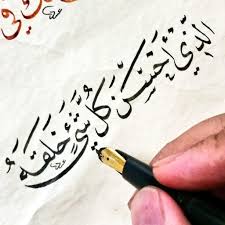 الَّذِي أَحْسَنَ كُلَّ شَيْءٍ خَلَقَهُ